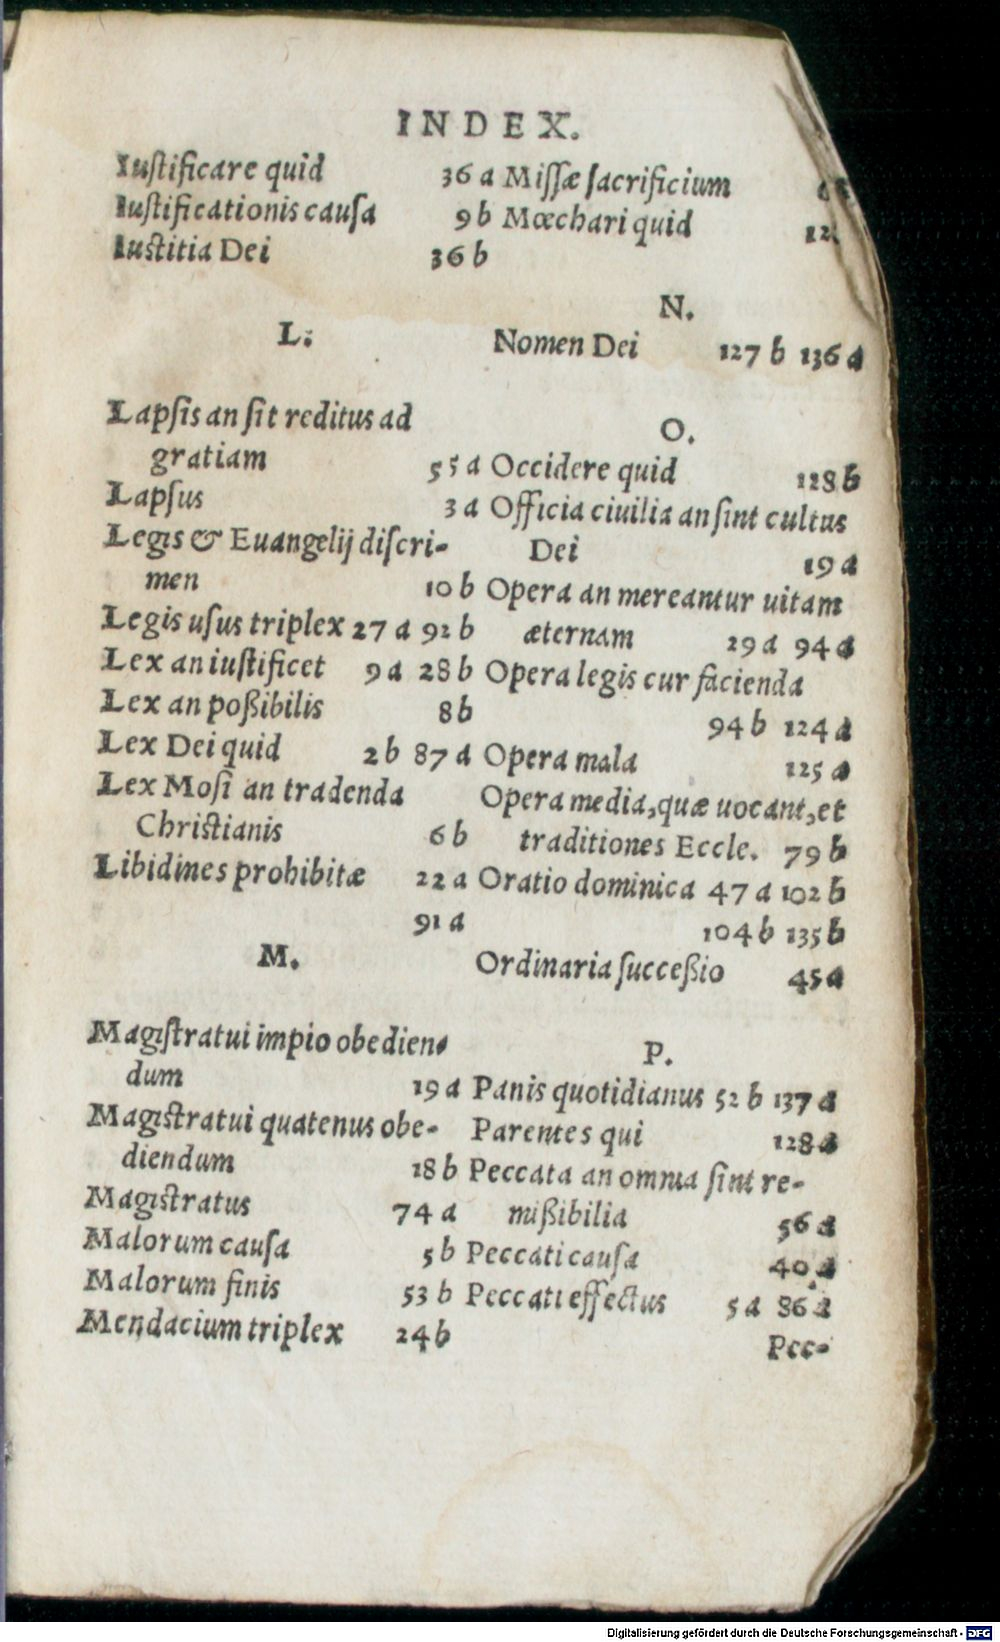 INDEX.
Iuſtificare quid 36 a
Iuſtificationis cauſa 9 b
Iuſtitia Dei 36 b
L.
Lapſis an ſit reditus ad
gratiam 55 a
Lapſus 3 a
Legis & Euangelij diſcri-
men 10 b
Legis uſus triplex 27 a 92 b
Lex an iuſtificet 9 a 28 b
Lex an poßibilis 8 b
Lex Dei quid 2 b 87 a
Lex Moſi an tradenda
Chriſtianis 6 b
Libidines prohibitæ 22 a
91 a
M.
Magiſtratui impio obedien-
dum 19 a
Magiſtratui quatenus obe-
diendum 18 b
Magiſtratus 74 a
Malorum cauſa 5 b
Malorum finis 53 b
Mendacium triplex 24 b
Miſſæ ſacrificium
Mœchari quid
N.
Nomen Dei 127 b 136 a
O.
Occidere quid 128 b
Officia ciuilia an ſint cultus
Dei 19 a
Opera an mereantur uitam
æternam 29 a 94 a
Opera legis cur facienda
94 b 124 a
Opera mala 125 a
Opera media, quæ uocant, et
traditiones Eccle. 79 b
Oratio dominica 47 a 102 b
104 b 135 b
Ordinaria succeßio 45 a
P.
Panis quotidianus 52 b 137 a
Parentes qui 128 a
Peccata an omnia ſint re-
mißibilia 56 a
Peccati cauſa 40 a
Peccati effectus 5 a 86 a
Pec-
Digitalisierung gefördert durch die Deutsche Forschungsgemeinschaft - DFG